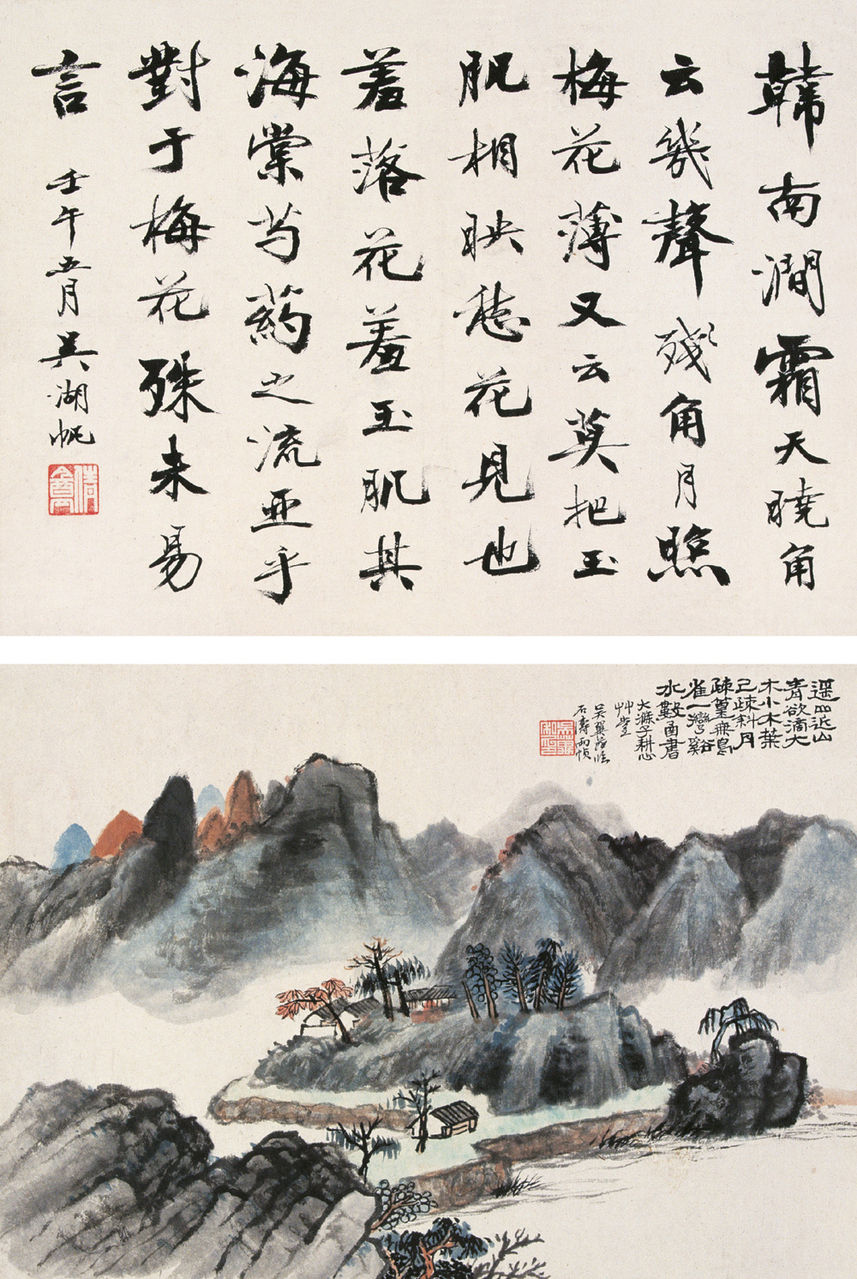 韓南澗霜天曉角
云幾聲殘角月照
梅花薄又云莫把玉
肌相映愁花見也
羞落花羞玉肌其
海棠芍藥之流亞乎
對于梅花殊未易
言
壬午五月吴湖帆
倩盦
遥山近山
青欲滴大
木小木葉
已疎斜月
疎篁無鳥
雀一灣谿
水數函書
大滌子耕心
艸堂
吴翼
石濤兩幀